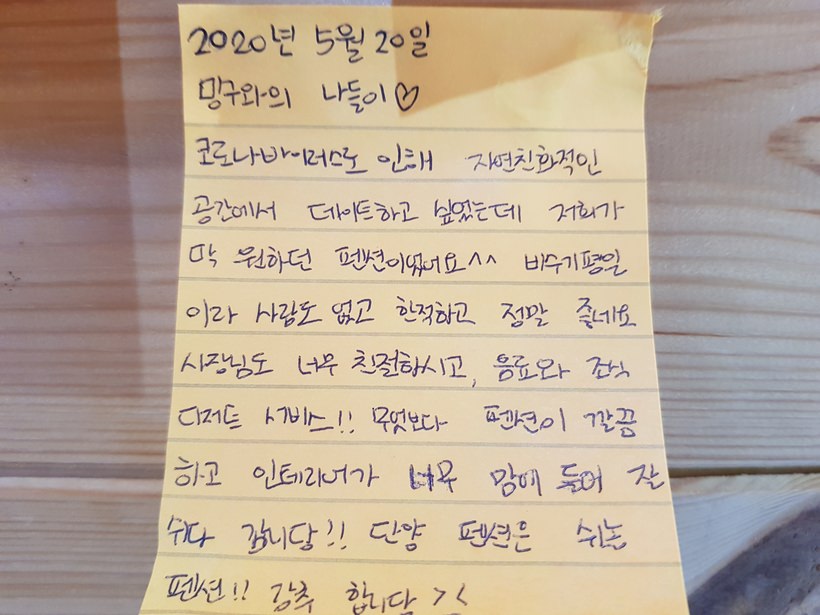 2020년 5월 20일
망구와의 나들이♡
코로나바이러스로 인해 자연친화적인
공간에서 데이트하고 싶었는데 저희가
딱 원하던 펜션이었어요^^ 비수기평일
이라 사람도 없고 한적하고 정말 좋네요
사장님도 너무 친절하시고, 음료와 조식
디저트 서비스!! 무엇보다 펜션이 깔끔
하고 인테리어가 너무 맘에 들어 잘
쉬다 갑니당!! 단양 펜션은 쉬는
펜션!! 강추 합니당 >.<